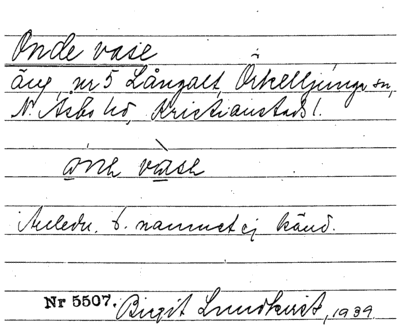 Onde vase
äng, nr 5 Långalt, Örkelljunga sn,
N. Åsbo hd, Kristianstads l.
vase
Anledn. t. namnet ej känd.
Nr 5507. Birgit Lundkvist, 1939